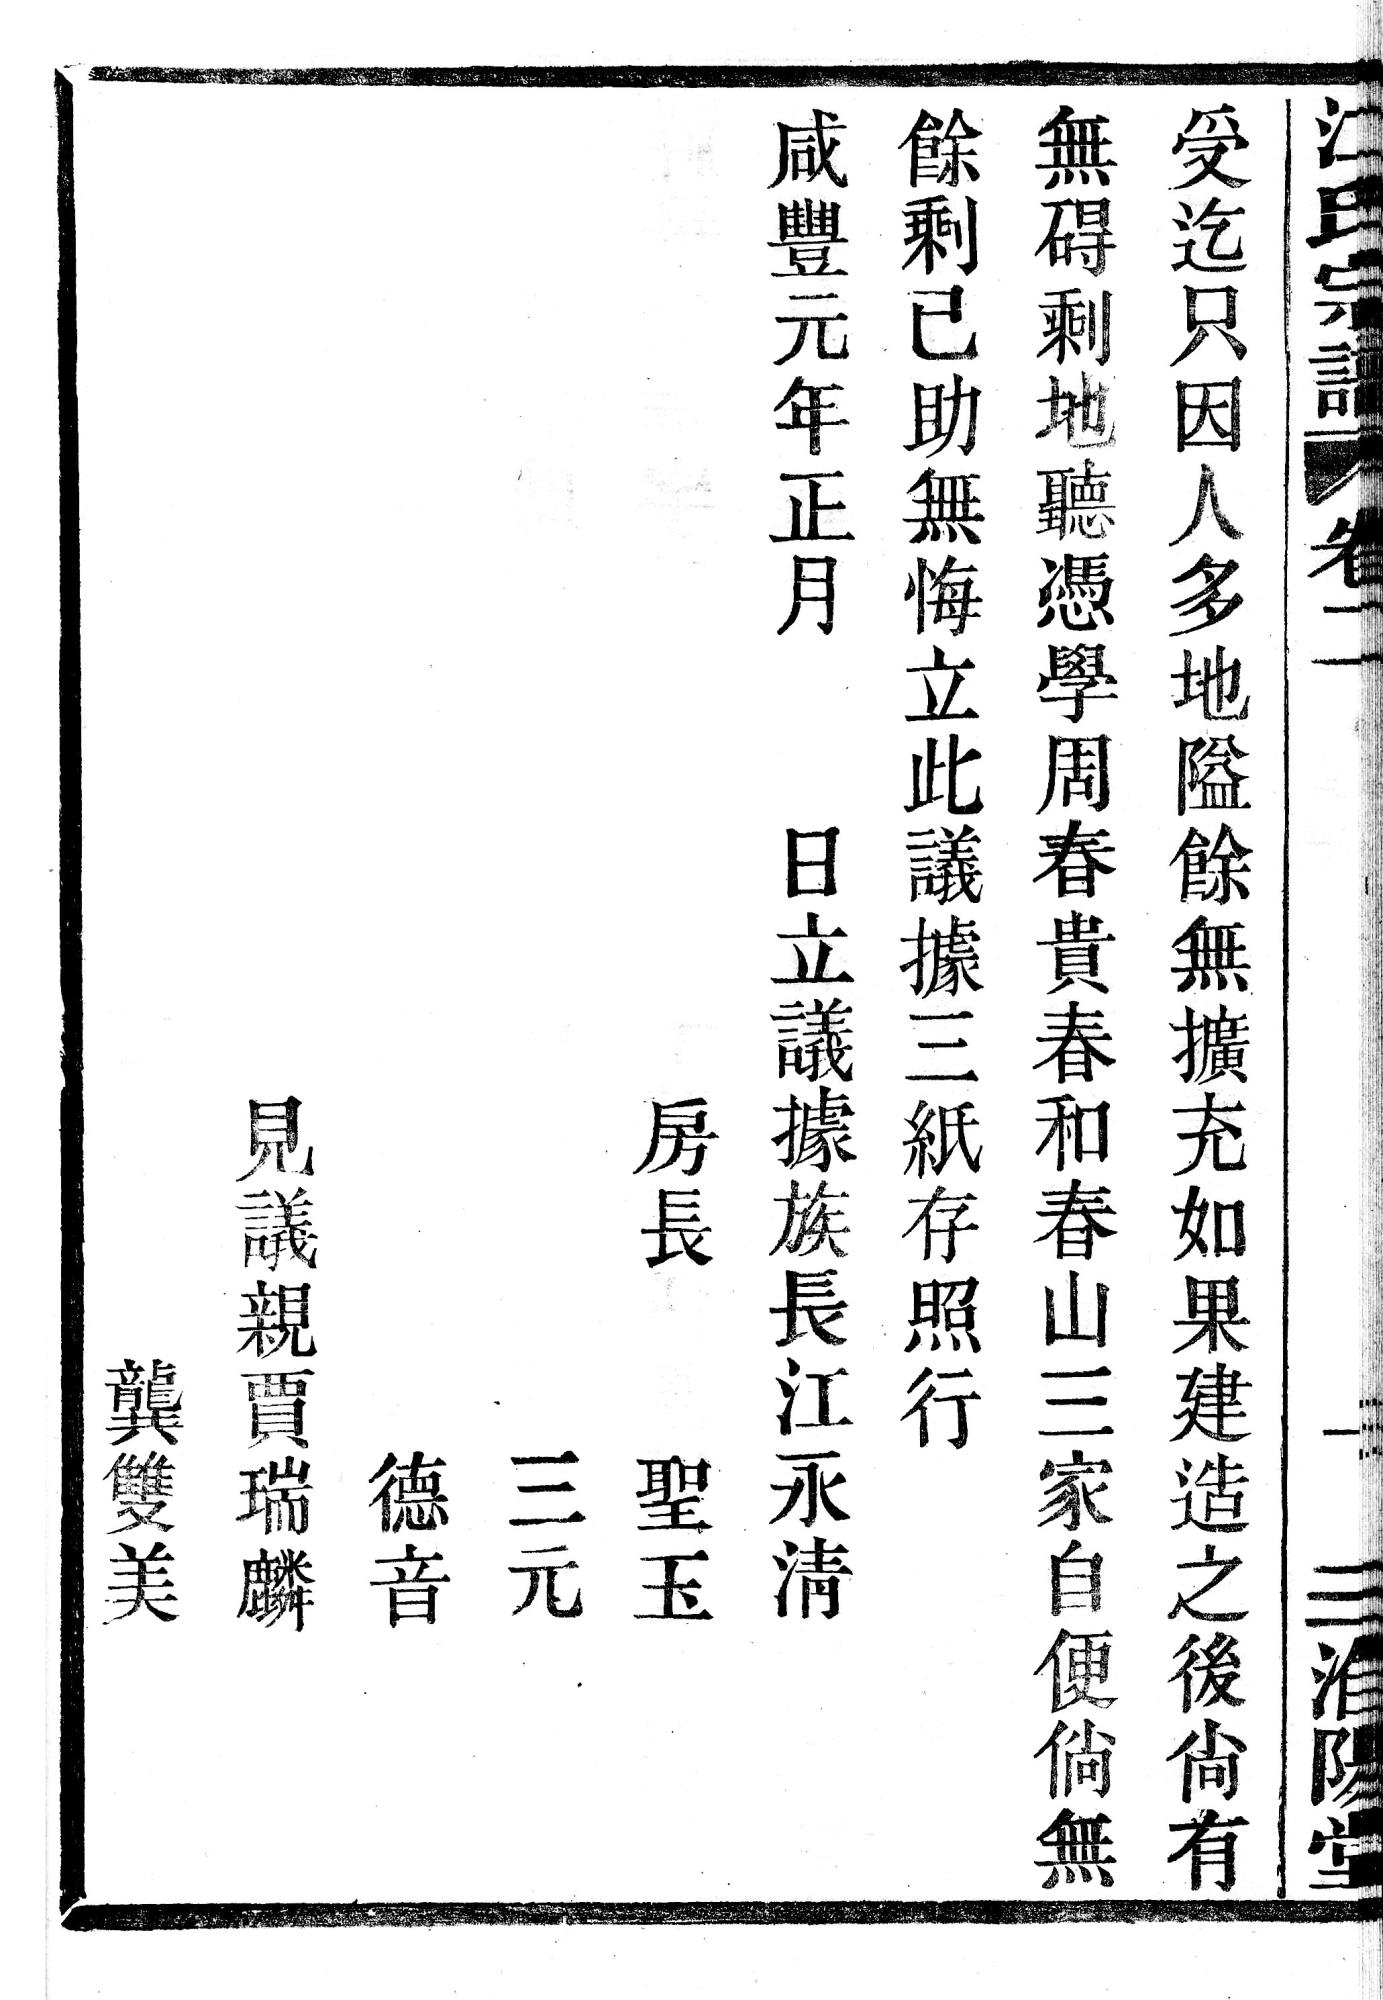 江氏宗譜 卷二 一 二 淮陽堂
受迄只因人多地隘餘無擴充如果建造之後尙有
無碍剩地聽憑學周春貴春和春山三家自便倘無
餘剩已助無悔立此議據三紙存照行
咸豐元年正月 日立議據族長江永清
房長 聖玉
三元
德音
見議親賈瑞麟
龔雙美